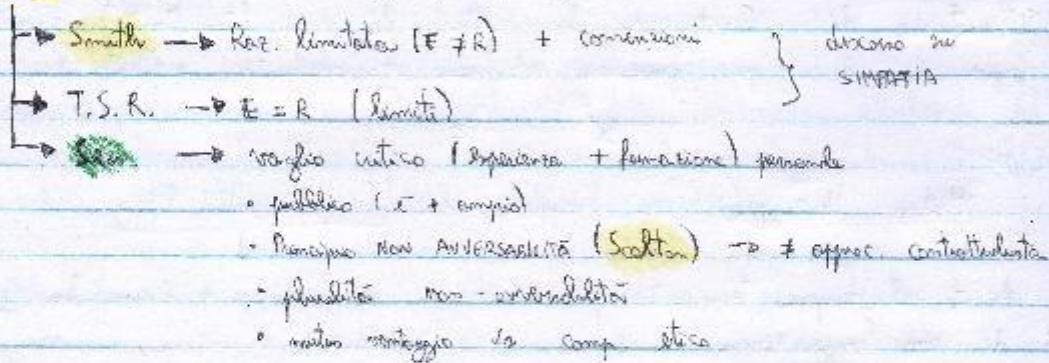 Smith → Raz. limitata (E ≠ R) + convenzioni } discorso su
SIMPATIA
T.S.R. → E = R (limiti)
Sen → vaglio critico (esperienza + formazione) personale
• pubblico (è + ampio)
- Principio NON AVVERSABILITÀ (Scalton) → ≠ approc. contrattualista
- pluralità non-
• mutuo vantaggio Vs comp. etico